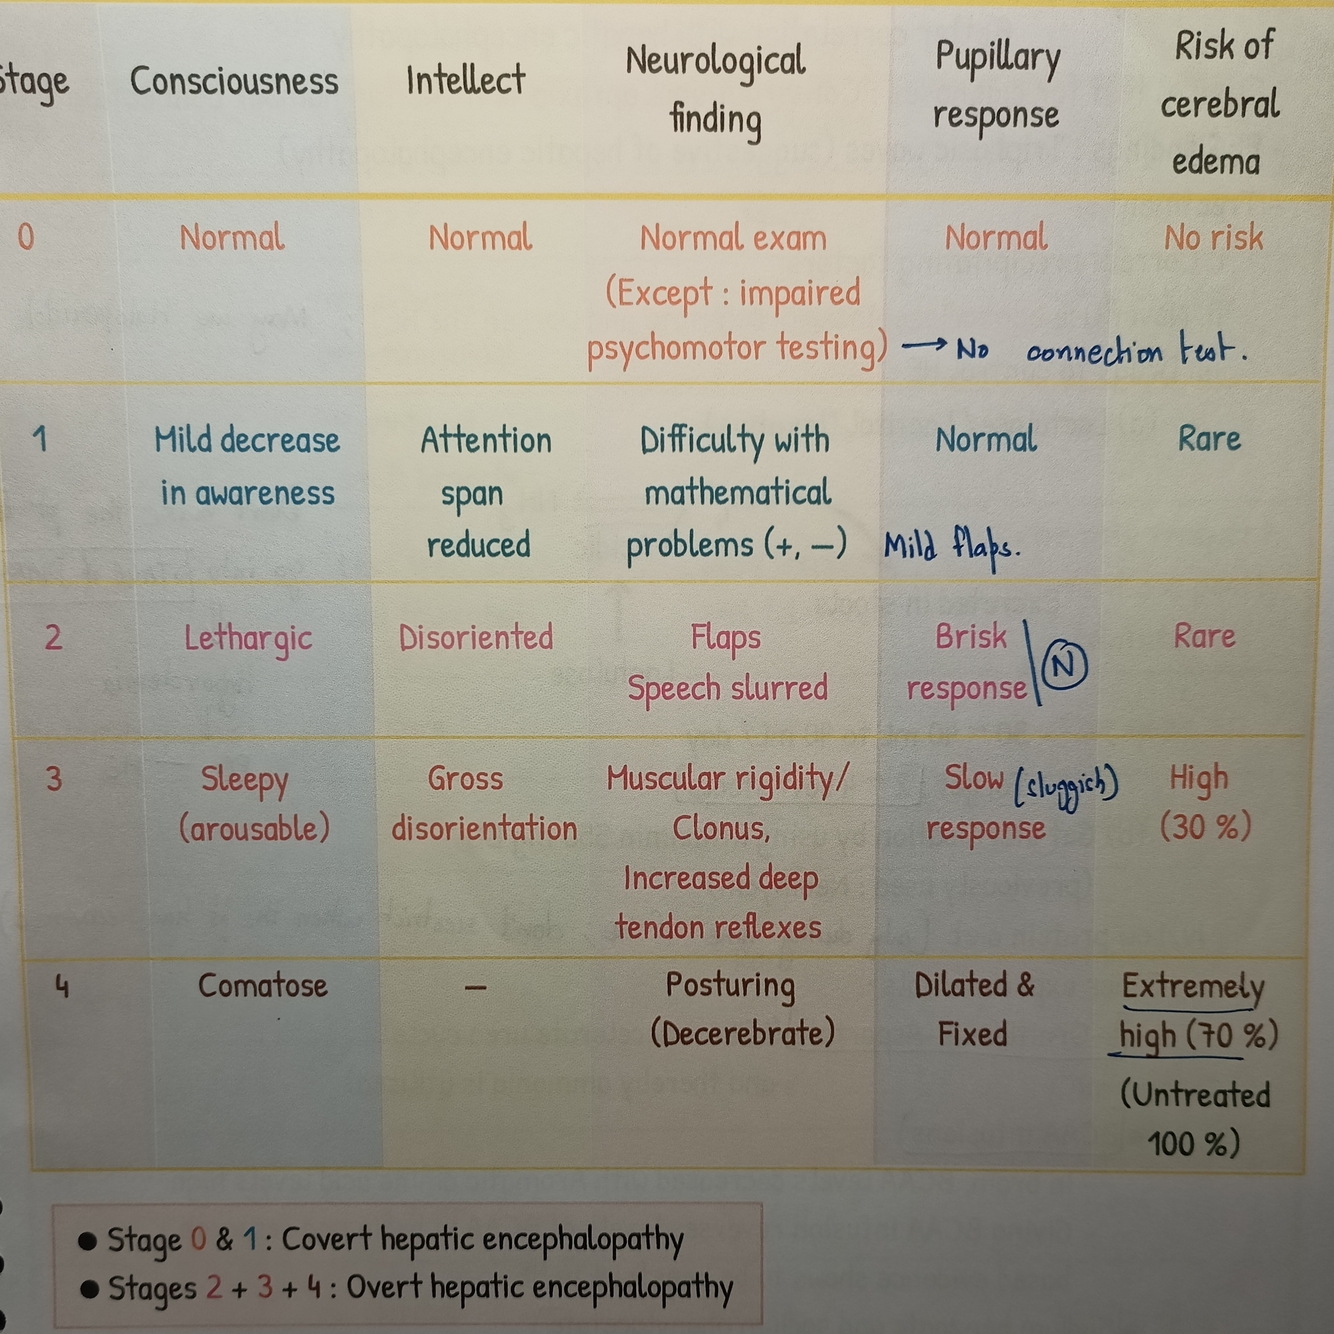 Stage Consciousness Intellect Neurological finding Pupillary response Risk of cerebral edema
0 Normal Normal Normal exam (Except : impaired psychomotor testing) → No connection test. Normal No risk
1 Mild decrease in awareness Attention span reduced Difficulty with mathematical problems (+, –) Mild flaps. Normal Rare
2 Lethargic Disoriented Flaps Speech slurred Brisk response / N Rare
3 Sleepy (arousable) Gross disorientation Muscular rigidity/ Clonus, Increased deep tendon reflexes Slow (sluggish) response High (30 %)
4 Comatose – Posturing (Decerebrate) Dilated & Fixed Extremely high (70 %) (Untreated 100 %)
● Stage 0 & 1 : Covert hepatic encephalopathy
● Stages 2 + 3 + 4 : Overt hepatic encephalopathy